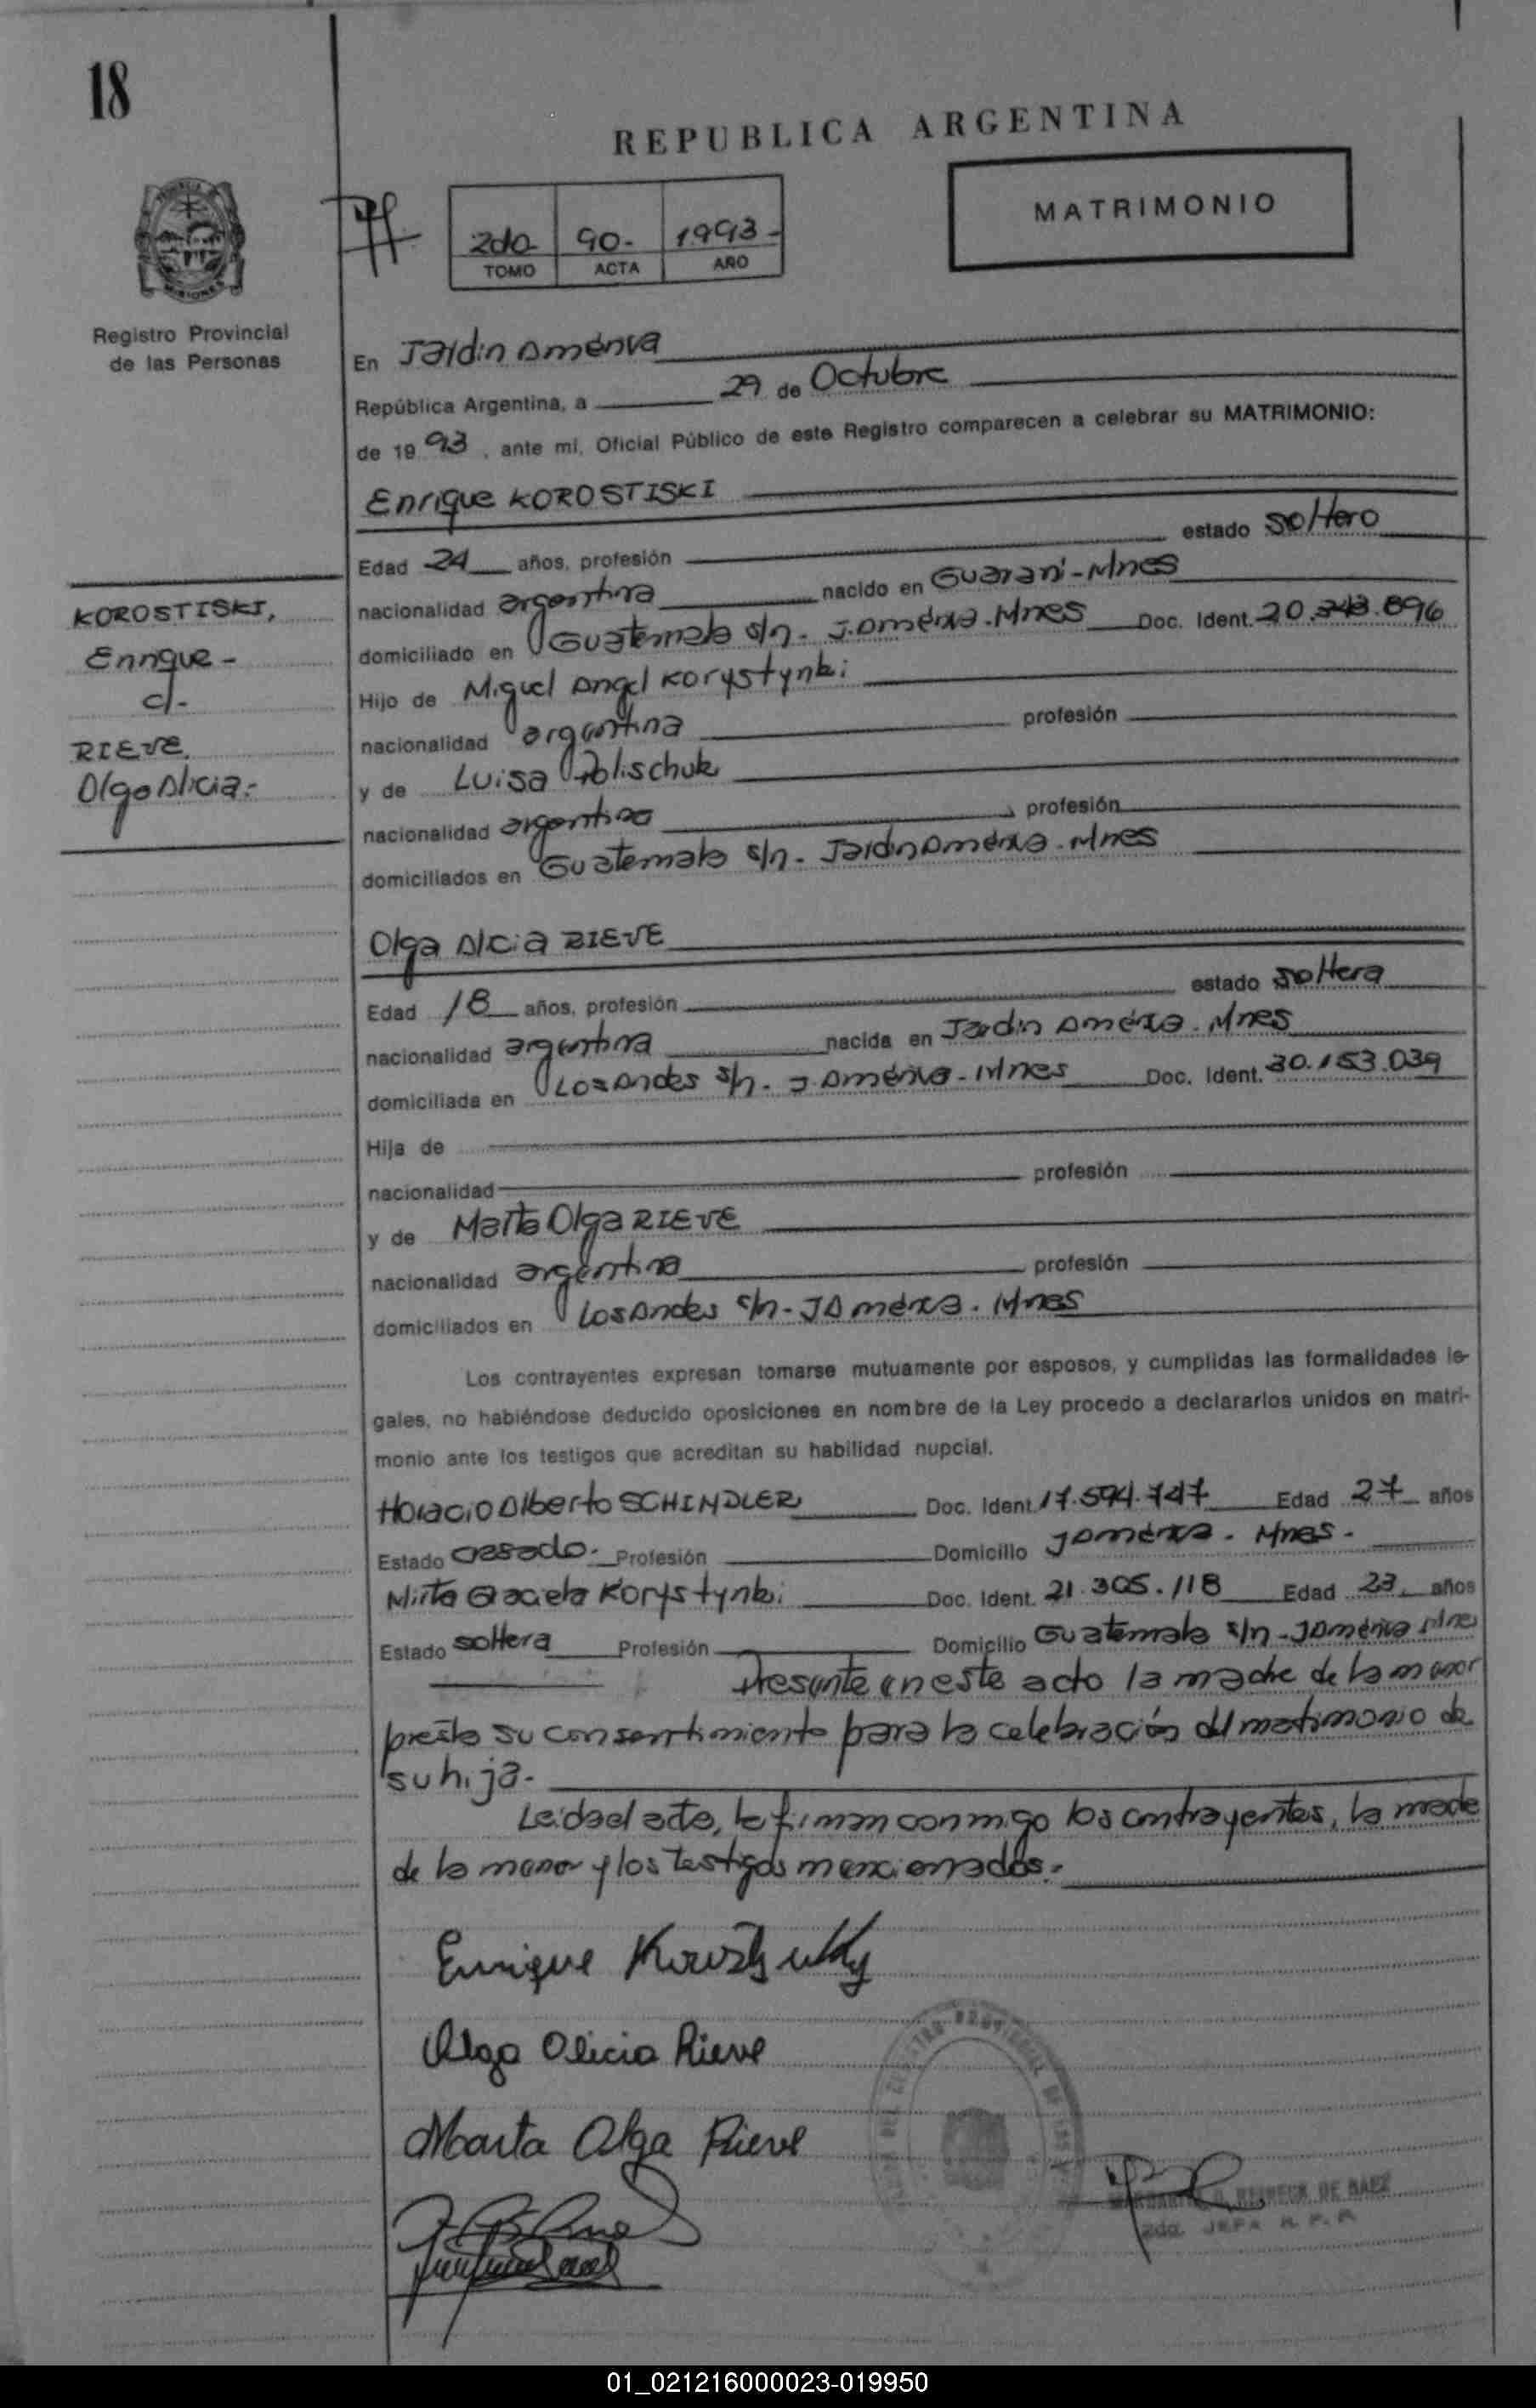 18
REPUBLICA ARGENTINA
MATRIMONIO
2do 90.- 1993-
TOMO ACTA AÑO
MISIONES
Registro Provincial
de las Personas
En Jardín América
República Argentina, a 29 de Octubre
de 1993, ante mi, Oficial Público de este Registro comparecen a celebrar su MATRIMONIO:
Enrique KOROSTISKI
Edad 24 años, profesión estado soltero
nacionalidad argentina nacido en Guaraní-Mnes
domiciliado en Guatemala s/n. J.América.Mnes Doc. Ident. 20.343.896
Hijo de Miguel Angel Korystynki
nacionalidad argentina profesión
y de Luisa Polischuk
nacionalidad argentina profesión
domiciliados en Guatemala s/n. JardínAmérica.Mnes
KOROSTISKI,
Enrique-
c/.
RIEVE
Olga Alicia.-
Olga Alicia RIEVE
Edad 18 años, profesión estado soltera
nacionalidad argentina nacida en Jardín América. Mnes
domiciliada en Los Andes s/n. J.América-Mnes Doc. Ident. 30.153.039
Hija de
nacionalidad profesión
y de Marta Olga RIEVE
nacionalidad argentina profesión
domiciliados en Los Andes s/n-JAmérica. Mnes
Los contrayentes expresan tomarse mutuamente por esposos, y cumplidas las formalidades le-
gales, no habiéndose deducido oposiciones en nombre de la Ley procedo a declararlos unidos en matri-
monio ante los testigos que acreditan su habilidad nupcial.
Horacio Alberto SCHINDLER Doc. Ident. 17.594.747 Edad 27 años
Estado casado. Profesión Domicilio JAmérica. Mnes.
Mirta Graciela Korystynki Doc. Ident. 21.305.118 Edad 23 años
Estado soltera Profesión Domicilio Guatemala s/n-JAmérica Mnes
Presente en este acto la madre de la menor
presta su consentimiento para la celebración del matrimonio de
su hija.
Leída el acta, la firman conmigo los contrayentes, la madre
de la menor y los testigos mencionados.
Enrique
Olga Alicia Rieve
Marta Olga Rieve
REINECK DE BAEZ
2da. JEFA R. P. P.
01_021216000023-019950